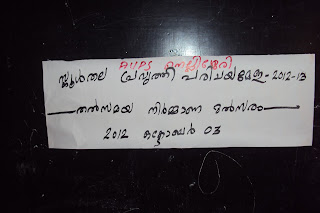 AUPS
സ്കൂൾതല പ്രവൃത്തി പരിചയമേള-2012-13
തൽസമയ നിർമ്മാണ മത്സരം
2012 ഒക്ടോബർ 03